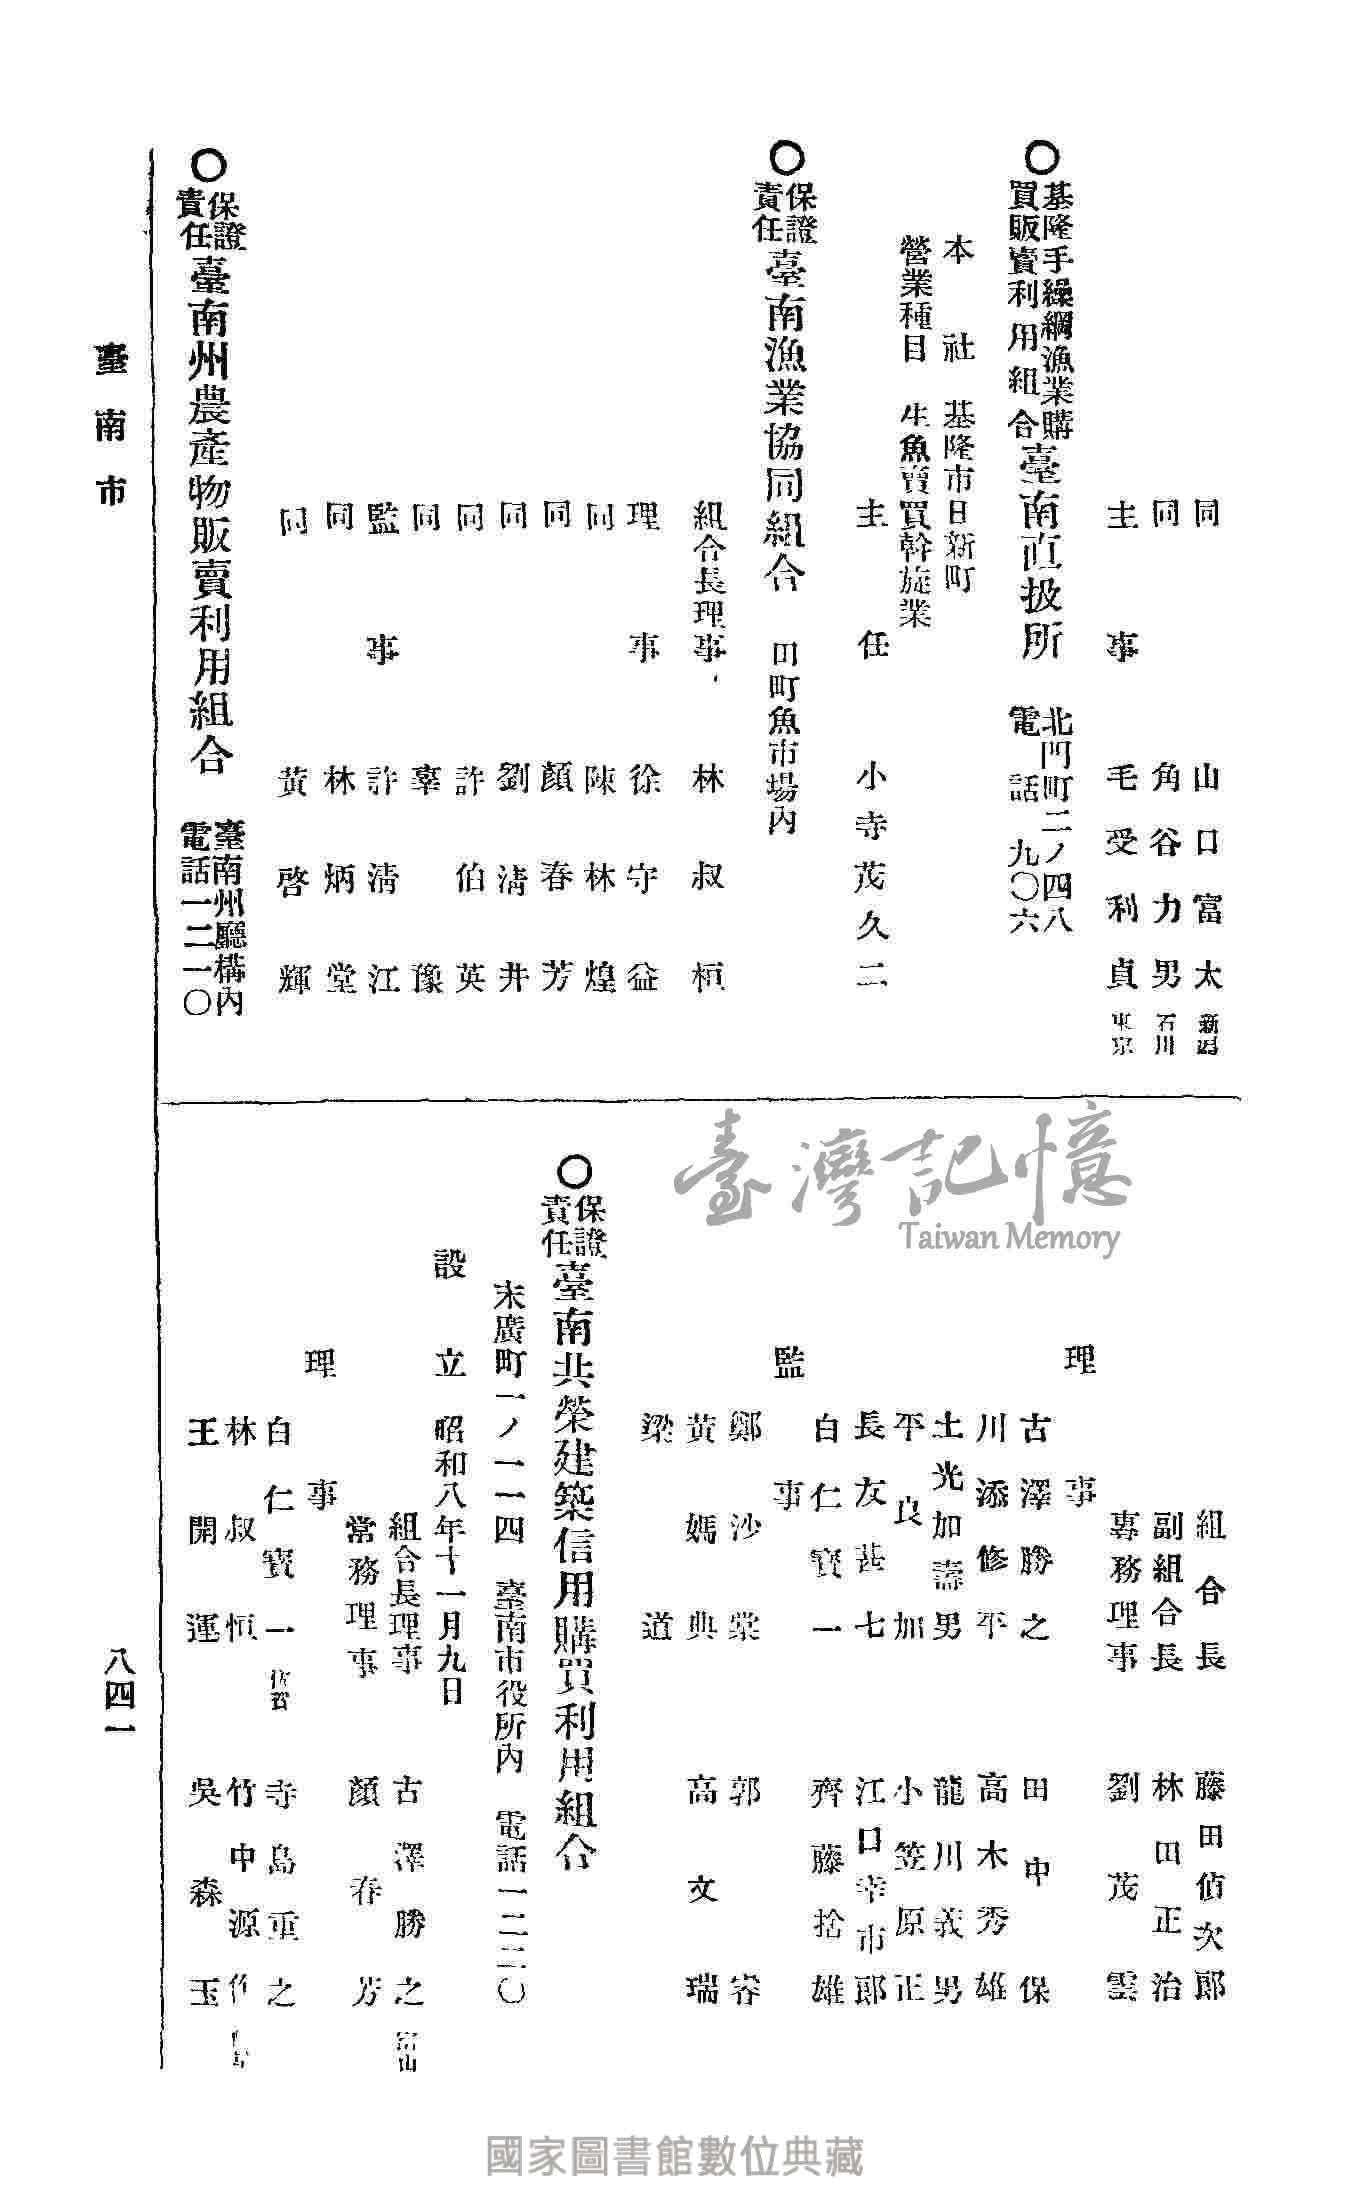 同 山口富太 新潟
同 角谷力男 石川
主事 毛受利貞 東京
○基隆手繰網漁業購買販賣利用組合臺南直扱所 北門町二ノ四八 電話九〇六
本社 基隆市日新町
營業種目 生魚賣買幹旋業
主任 小寺茂久二
○保證責任臺南漁業協同組合 田町魚市場內
組合長理事 林叔桓
理事 徐守益
同 陳林煌
同 顏春芳
同 劉淸井
同 許伯英
同 辜豫
監事 許淸江
同 林炳堂
同 黃啓輝
○保證責任臺南州農產物販賣利用組合 臺南州廳構內 電話一二一〇
組合長 藤田偵次郎
副組合長 林田正治
專務理事 劉茂雲
理事
古澤勝之 田中保
川添修平 高木秀雄
土光加壽男 龍川義男
平良加 小笠原正
長友甚七 江口幸市郎
白仁寶一 齊藤捨雄
監事
鄭沙棠 郭容
黃媽典 高文瑞
梁道
○保證責任臺南共榮建築信用購買利用組合
末廣町一ノ一一四 臺南市役所內 電話一二二〇
設立 昭和八年十一月九日
組合長理事 古澤勝之 富山
常務理事 顏春芳
理事
白仁寶一 佐賀 寺島重之
林叔恒 竹中源作
王開運 吳森玉
臺南市
八四一
臺灣記憶
Taiwan Memory
國家圖書館數位典藏